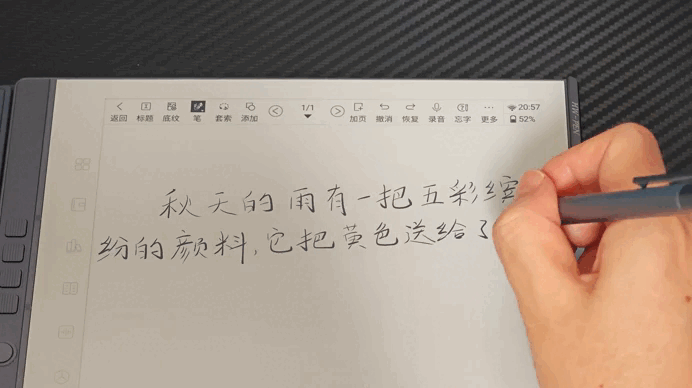 返回 标题 底纹 笔 套索 添加 1/1 加页 撤消 恢复 录音 忘字 更多 20:57 52%
秋天的雨有一把五彩缤
纷的颜料，它把黄色送给了